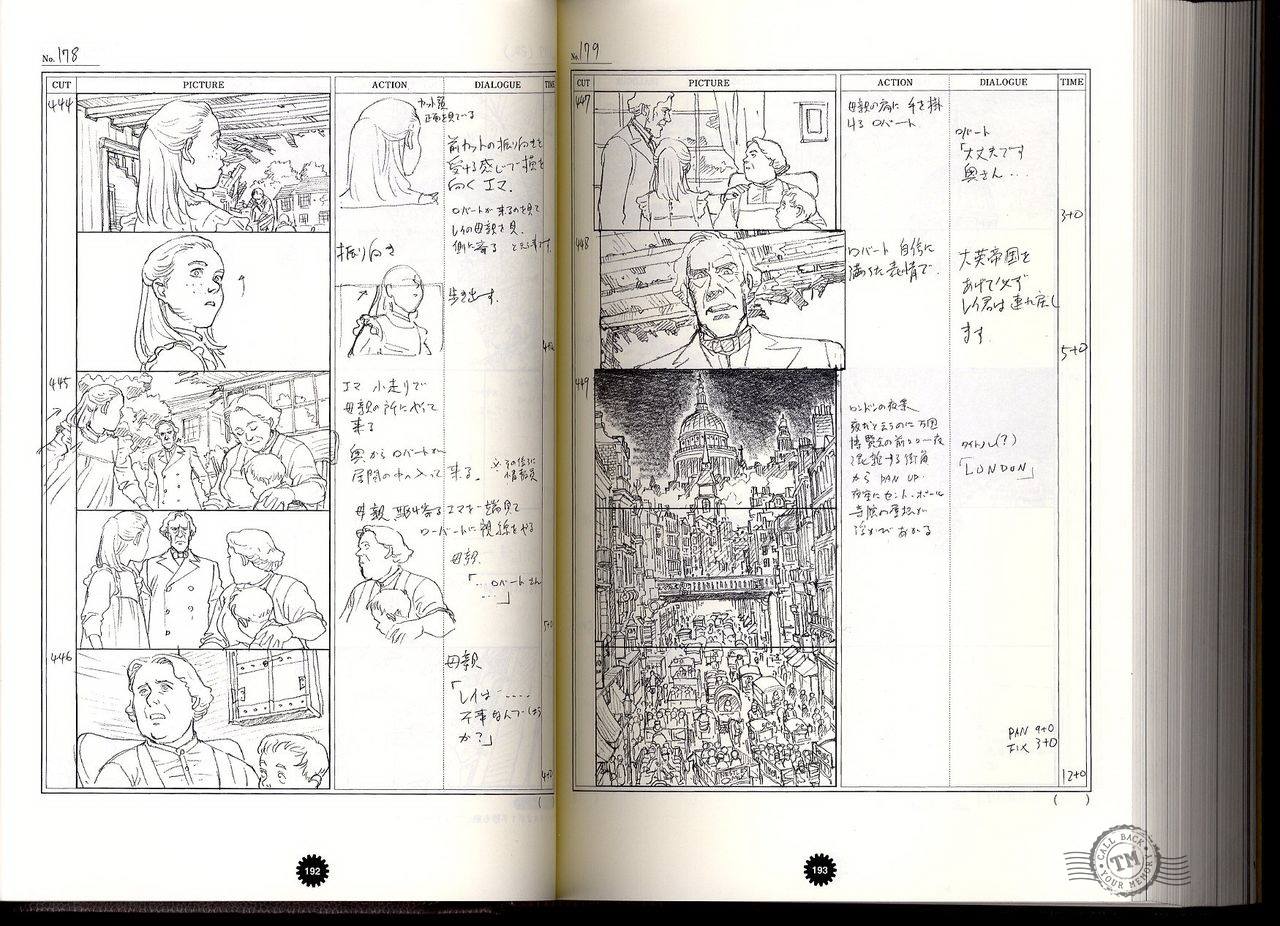 No. 178
CUT
PICTURE
ACTION
DIALOGUE
TIME
444
カット頭
正面を見ている
前カットの振り向きを
受ける感じで横を
向くエマ.
ロバートが来るのを見て
レイの母親を見.
側に寄る
振り向き
歩き出す.
445
エマ 小走りで
母親の所にやって
来る
奥からロバートが
居間の中へ入って来る.
母親 駆け寄るエマを一端見て
ロバートに視線をやる
母親.
「… ロバートさん
…」
446
母親
「レイは……
不事なんでしょう
か?」
192
No. 179
CUT
PICTURE
ACTION
DIALOGUE
TIME
447
母親の肩に 手を掛
ける ロバート
ロバート
「大丈夫です
奥さん…
3+0
448
ロバート 自信に
満ちた表情で.
大英帝国を
あげて必ず
レイ君は連れ戻し
ます.
5+0
449
ロンドンの夜景
夜だと云うのに万国
博覧会の前の一夜
混雑する街角
から PAN UP.
夜空にセント・ポール
寺院の屋根が
浮かびあがる
タイトル(?)
「LONDON」
PAN 9+0
FIX 3+0
12+0
( )
193
CALL BACK
TM
YOUR MEMORY